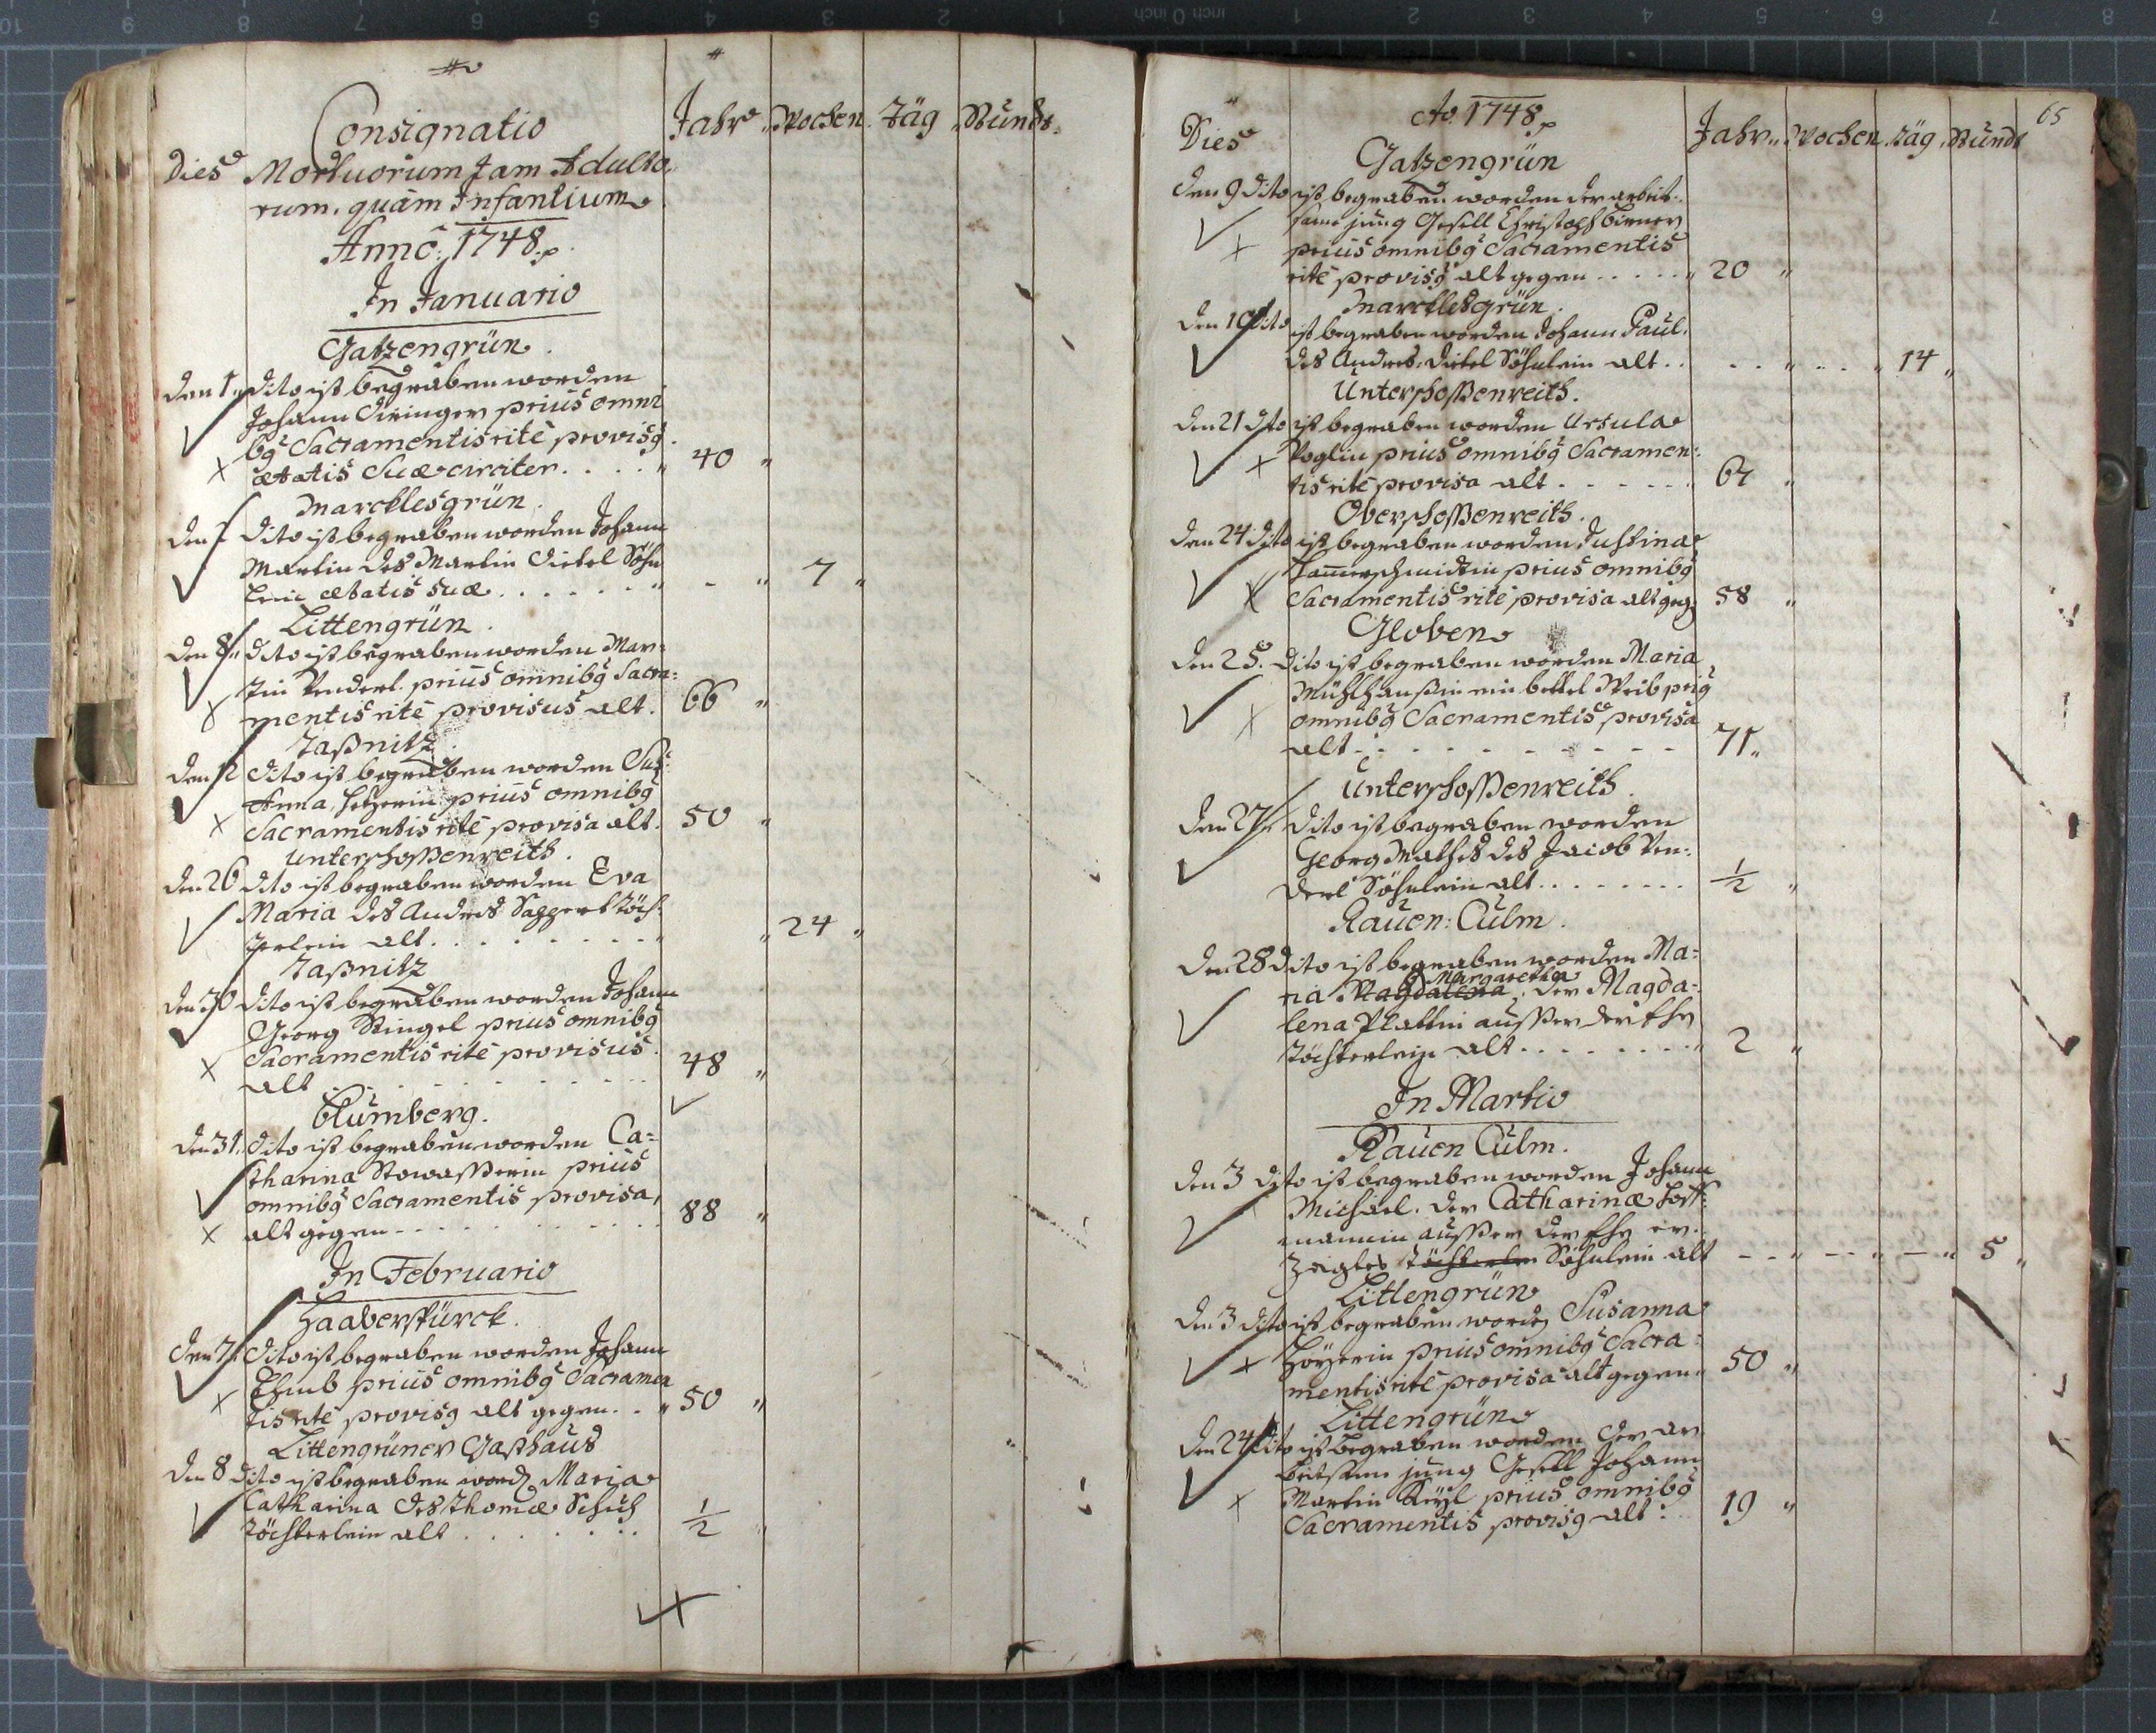 Consignatio
Jahr Wochen Täg Stund.
Dies Mortuorum Jam Adulto
rum, quàm Infantium
Anno: 1748.
In Januario
Gatzengrün
Den 1. dito ist begraben worden
Johann prius omni
bg Sacramentis rite provisg
ætatis suæ circiter 40
Marcklesgrün
Den 7 dito ist begraben worden Johann
Martin des Martin Dietel Söhn
lein ætatis suæ 7
Littengrün
Den 8. dito ist begraben worden Mar=
tin Venderl. prius omnibg Sacra=
mentis rite provisus alt. 66
Taßnitz
Den 12 dito ist begraben worden Sus:
Anna prius omnibg
Sacramentis rite provisa alt. 50
Unterschoßenreith.
Den 26 dito ist begraben worden Eva
Maria des Andres töch=
terlein alt 24
Taßnitz
Den 30 dito ist begraben worden Johann
Georg Stingel prius omnibg
Sacramentis rite provisus
alt 48
Blumberg.
Den 31. dito ist begraben worden Ca=
tharina Stowasserin prius
omnibg Sacramentis provisa,
alt gegen 88
In Februario
Haaberspürck.
Den 7. dito ist begraben worden Johann
prius omnibg Sacramen
tis rite provisg alt gegen 50
Littengrüner Gasthaus
Den 8 dito ist begraben word Maria
Catharina des Thomæ Schuh
töchterlein alt 1/2
65
Ao. 1748
Dies Jahr Wochen täg Stund
Gatzengrün
Den 9 dito ist begraben worden der arbeit=
same jung Gesell Christoph
prius omnibg Sacramentis
rite provisg alt gegen 20
Marcklesgrün.
Den 10 dito ist begraben worden Johann Paul.
des Andres Dietel Söhnlein alt 14
Unterschoßenreith.
Den 21 dito ist begraben worden Ursula
Voglin prius omnibg Sacramen=
tis rite provisa alt 64
Oberschoßenreith.
Den 24 dito ist begraben worden Justina
Hammerschmidtin prius omnibg
Sacramentis rite provisa alt geg. 58
Globen
Den 25. dito ist begraben worden Maria
Mühlhanßin ein bettel Weib prig
omnibg Sacramentis provisa
alt 71
Unterschoßenreith.
Den 27. dito ist begraben worden
Georg Mathes des Jacob Ven=
derl Söhnlein alt 1/2
Rauen: Culm.
Den 28 dito ist begraben worden Ma=
Margaretha
ria Magdalena, der Magda=
lena außer der Ehe
töchterlein alt 2
In Martio
Rauen Culm.
Den 3 dito ist begraben worden Johann
Michael. der Catharinæ Hoff=
mannin außer der Ehe er=
zeigtes töchterlein Söhnlein alt 5
Littengrün
Den 3 dito ist begraben worden Susanna
prius omnibg Sacra=
mentis rite provisa alt gegen 50
Littengrün
Den 24 dito ist begraben worden der ar
beitsame jung Gesell Johann
Martin Keyl prius omnibg
Sacramentis provisg alt: 19